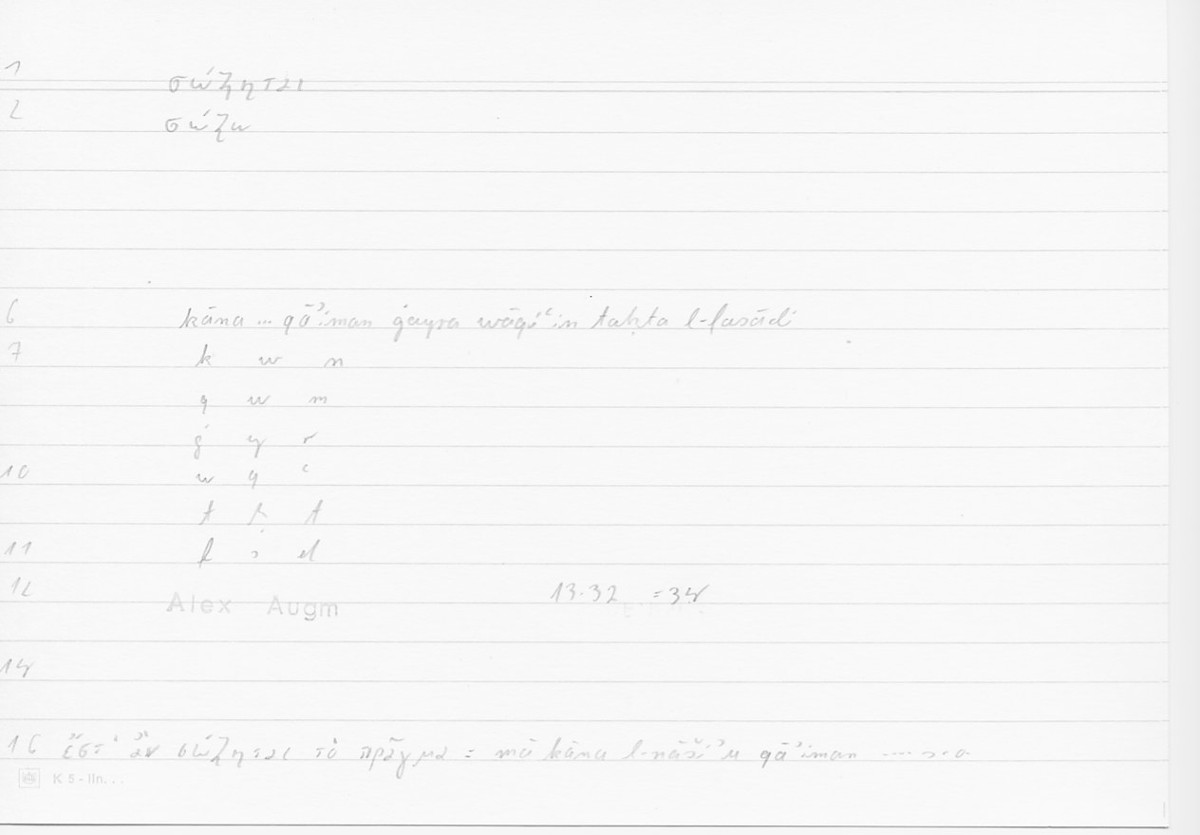 1 σώζηται
2 σώζω
6 kāna ... qāʾiman ġayra wāqiʿin taḥta l-fasādi
7 k w n
q w m
ġ y r
10 w q ʿ
t ḥ t
11 f s d
12 Alex Augm 13.32 =34
14
16 ἔστ' ἂν σώζηται τὸ πρᾶγμα = mā kāna l-nāšiʾu qāʾiman
K 5 - lln. . .